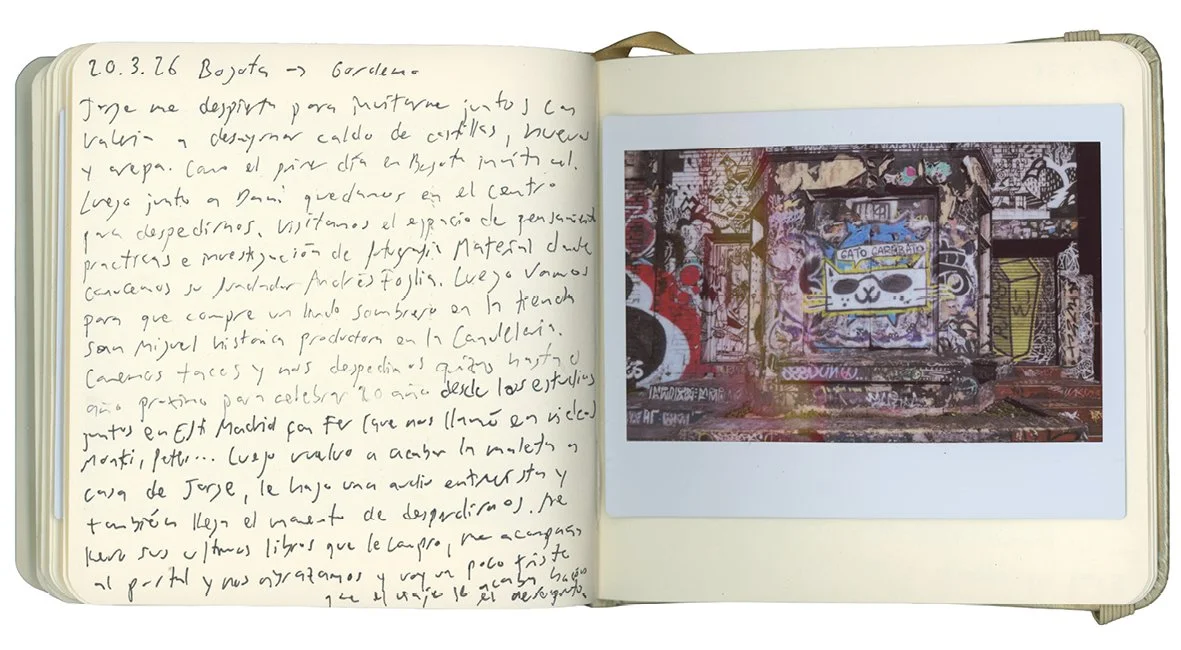 20.3.26 Bogota → 
Jorge me despierta para invitarme juntos con
Valeria a desayunar caldo de costillas, huevos
y arepa. Como el primer día en Bogota invita él.
Luego junto a Dani quedamos en el centro
para despedirnos. Visitamos el espacio de pensamiento
practicas e investigación de fotografía Material donde
conocemos su fundador Andrés Foglia. Luego vamos
para que compre un lindo sombrero en la tienda
San Miguel historica productora en la Candelaria.
Comemos tacos y nos despedimos quizas hasta el
año proximo para celebrar 20 año desde los estudios
juntos en Efti Madrid con Fer (que nos llamó en video)
Monti, ... Luego vuelvo a acabar la maleta a
casa de Jorge, le hago una audio entrevista y
también llega el momento de despedirnos. Me
llevo sus ultimos libros que le compro, me acompaña
al portal y nos abrazamos y voy un poco triste
que el viaje se acaba hacia
el aeropuerto.
GATO CARABATO